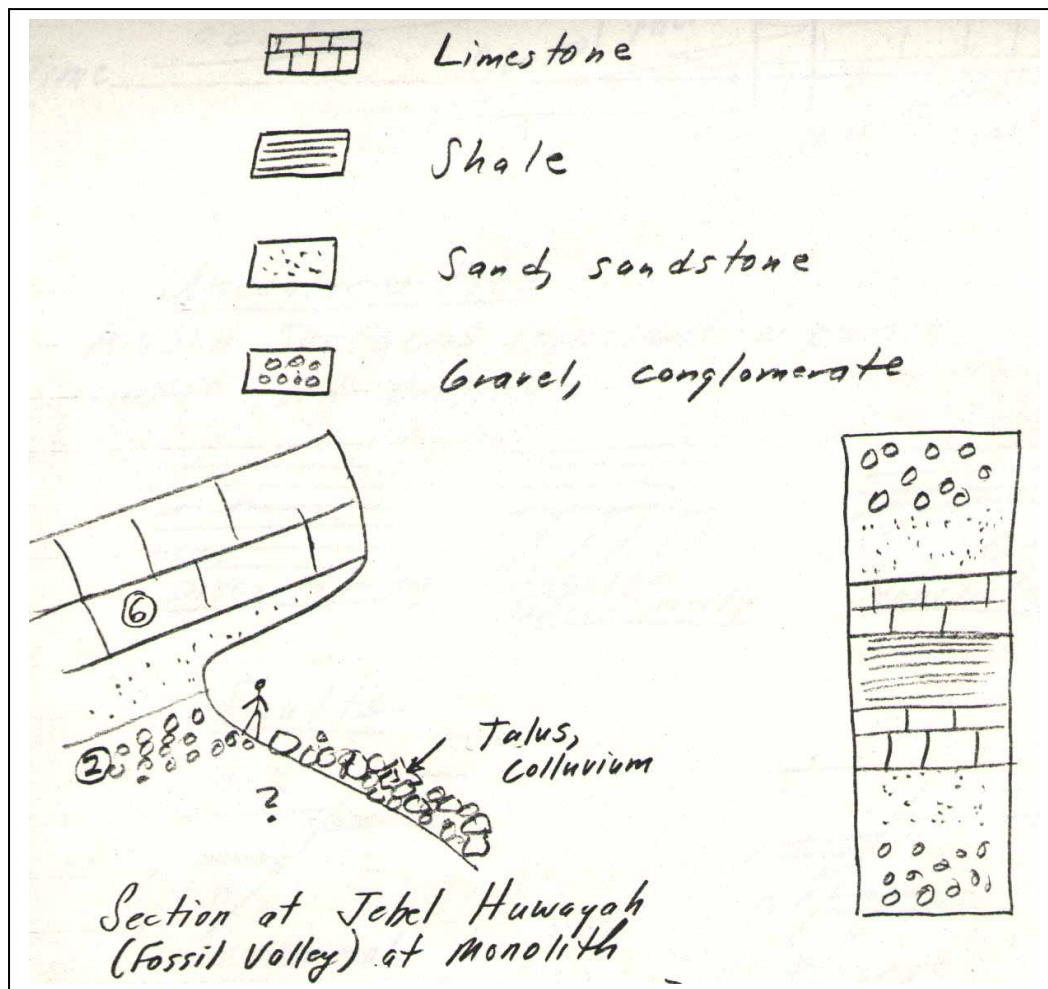 Limestone
Shale
Sand, sandstone
Gravel, conglomerate
6
2
?
Talus,
colluvium
Section at Jebel Huwayah
(Fossil Valley) at monolith